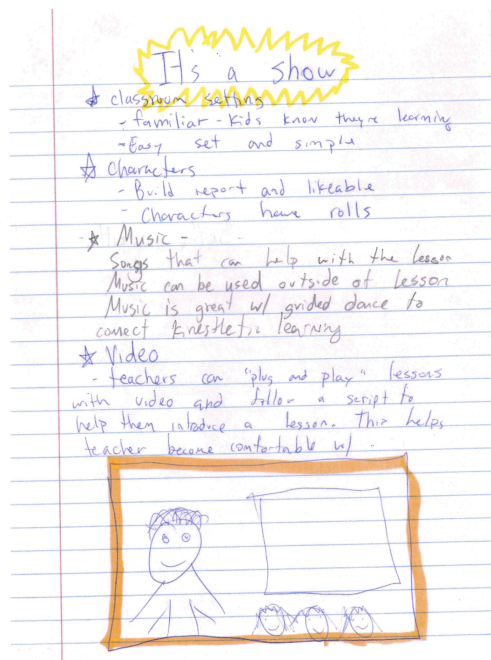 It's a show
☆ classroom setting
- familiar - kids know they're learning
- Easy set and simple
☆ Characters
- Build report and likeable
- Characters have rolls
☆ Music -
Songs that can help with the lesson
Music can be used outside of lesson
Music is great w/ guided dance to
connect kinestletic learning
☆ Video
- teachers can "plug and play" lessons
with video and follow a script to
help them introduce a lesson. This helps
teacher become comfortable w/ .